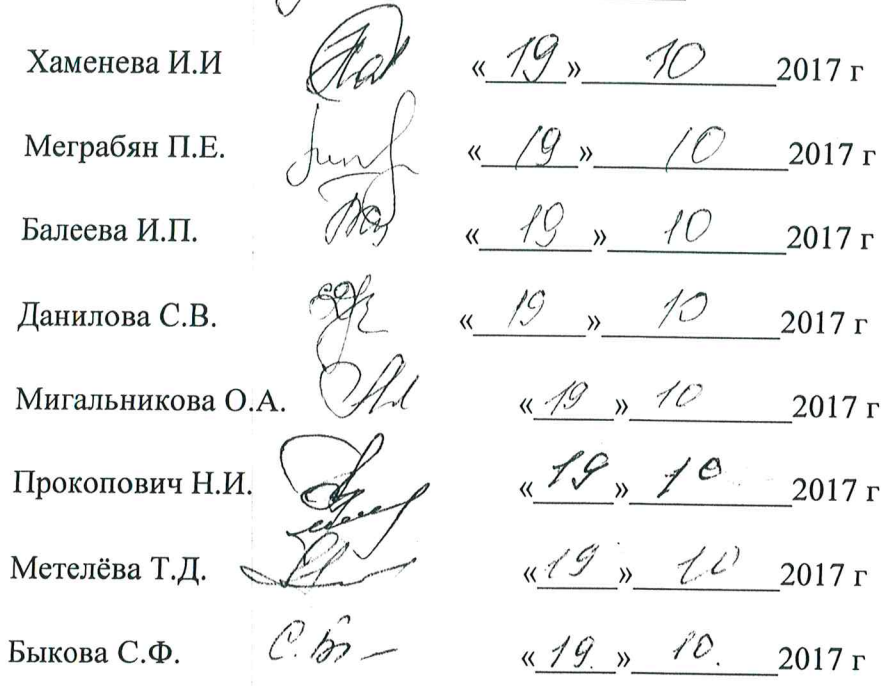 Хаменева И.И «19» 10 2017 г
Меграбян П.Е. «19» 10 2017 г
Балеева И.П. «19» 10 2017 г
Данилова С.В. «19» 10 2017 г
Мигальникова О.А. «19» 10 2017 г
Прокопович Н.И. «19» 10 2017 г
Метелёва Т.Д. «19» 10 2017 г
Быкова С.Ф. «19.» 10. 2017 г